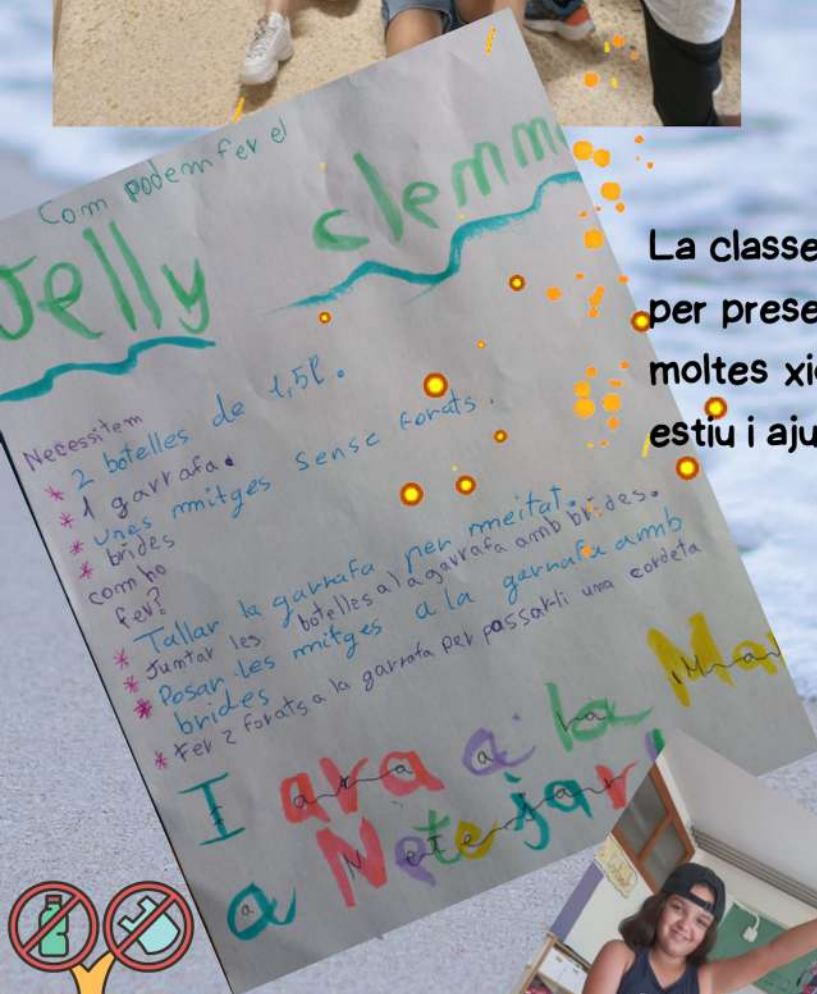 Com podem fer el
Jelly clemm
Necessitem
* 2 botelles de 1,5l.
* 1 garrafa.
* Unes mitges sense forats.
* brides
com ho
fer?
* Tallar la garrafa per meitat.
* Juntar les botelles a la garrafa amb brides.
* Posar les mitges a la garrafa amb
brides
* Fer 2 forats a la garrafa per passar-li una cordeta
I ara a la Mar
a Netejar!
La classe
per prese
moltes xi
estiu i aju